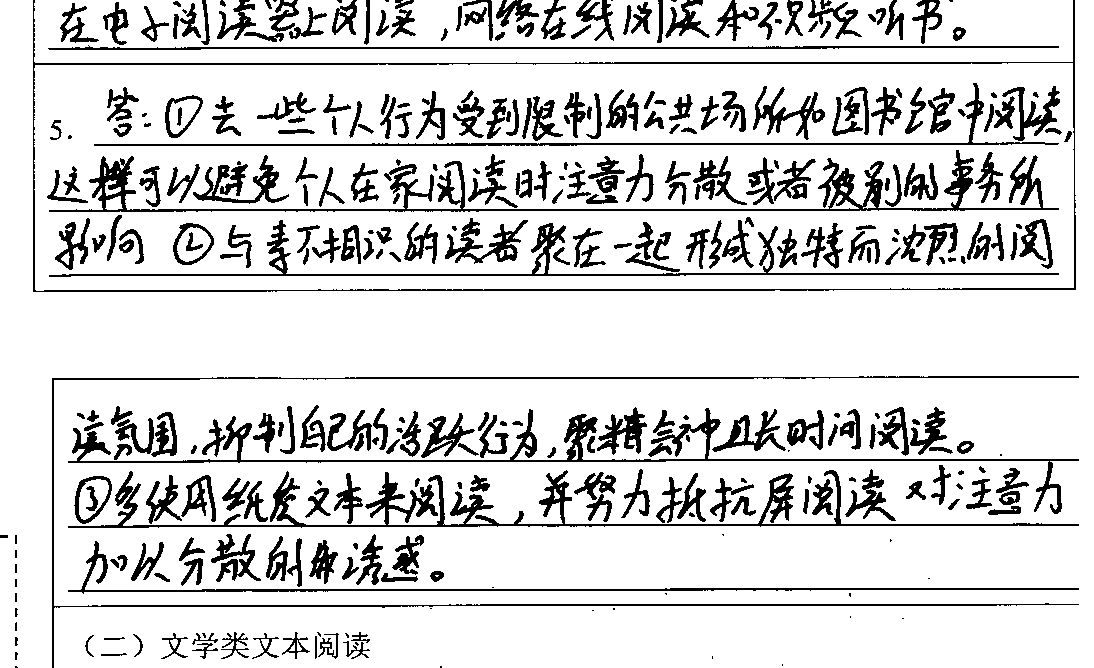 在电子阅读器上阅读，网络在线阅读和视频听书。
5. 答：①去一些个人行为受到限制的公共场所如图书馆中阅读，
这样可以避免个人在家阅读时注意力分散或者被别的事务所
影响 ②与素不相识的读者聚在一起形成独特而浓烈的阅
读氛围，抑制自己的活跃行为，聚精会神且长时间阅读。
③多使用纸质文本来阅读，并努力抵抗屏阅读对注意力
加以分散的诱惑。
（二）文学类文本阅读